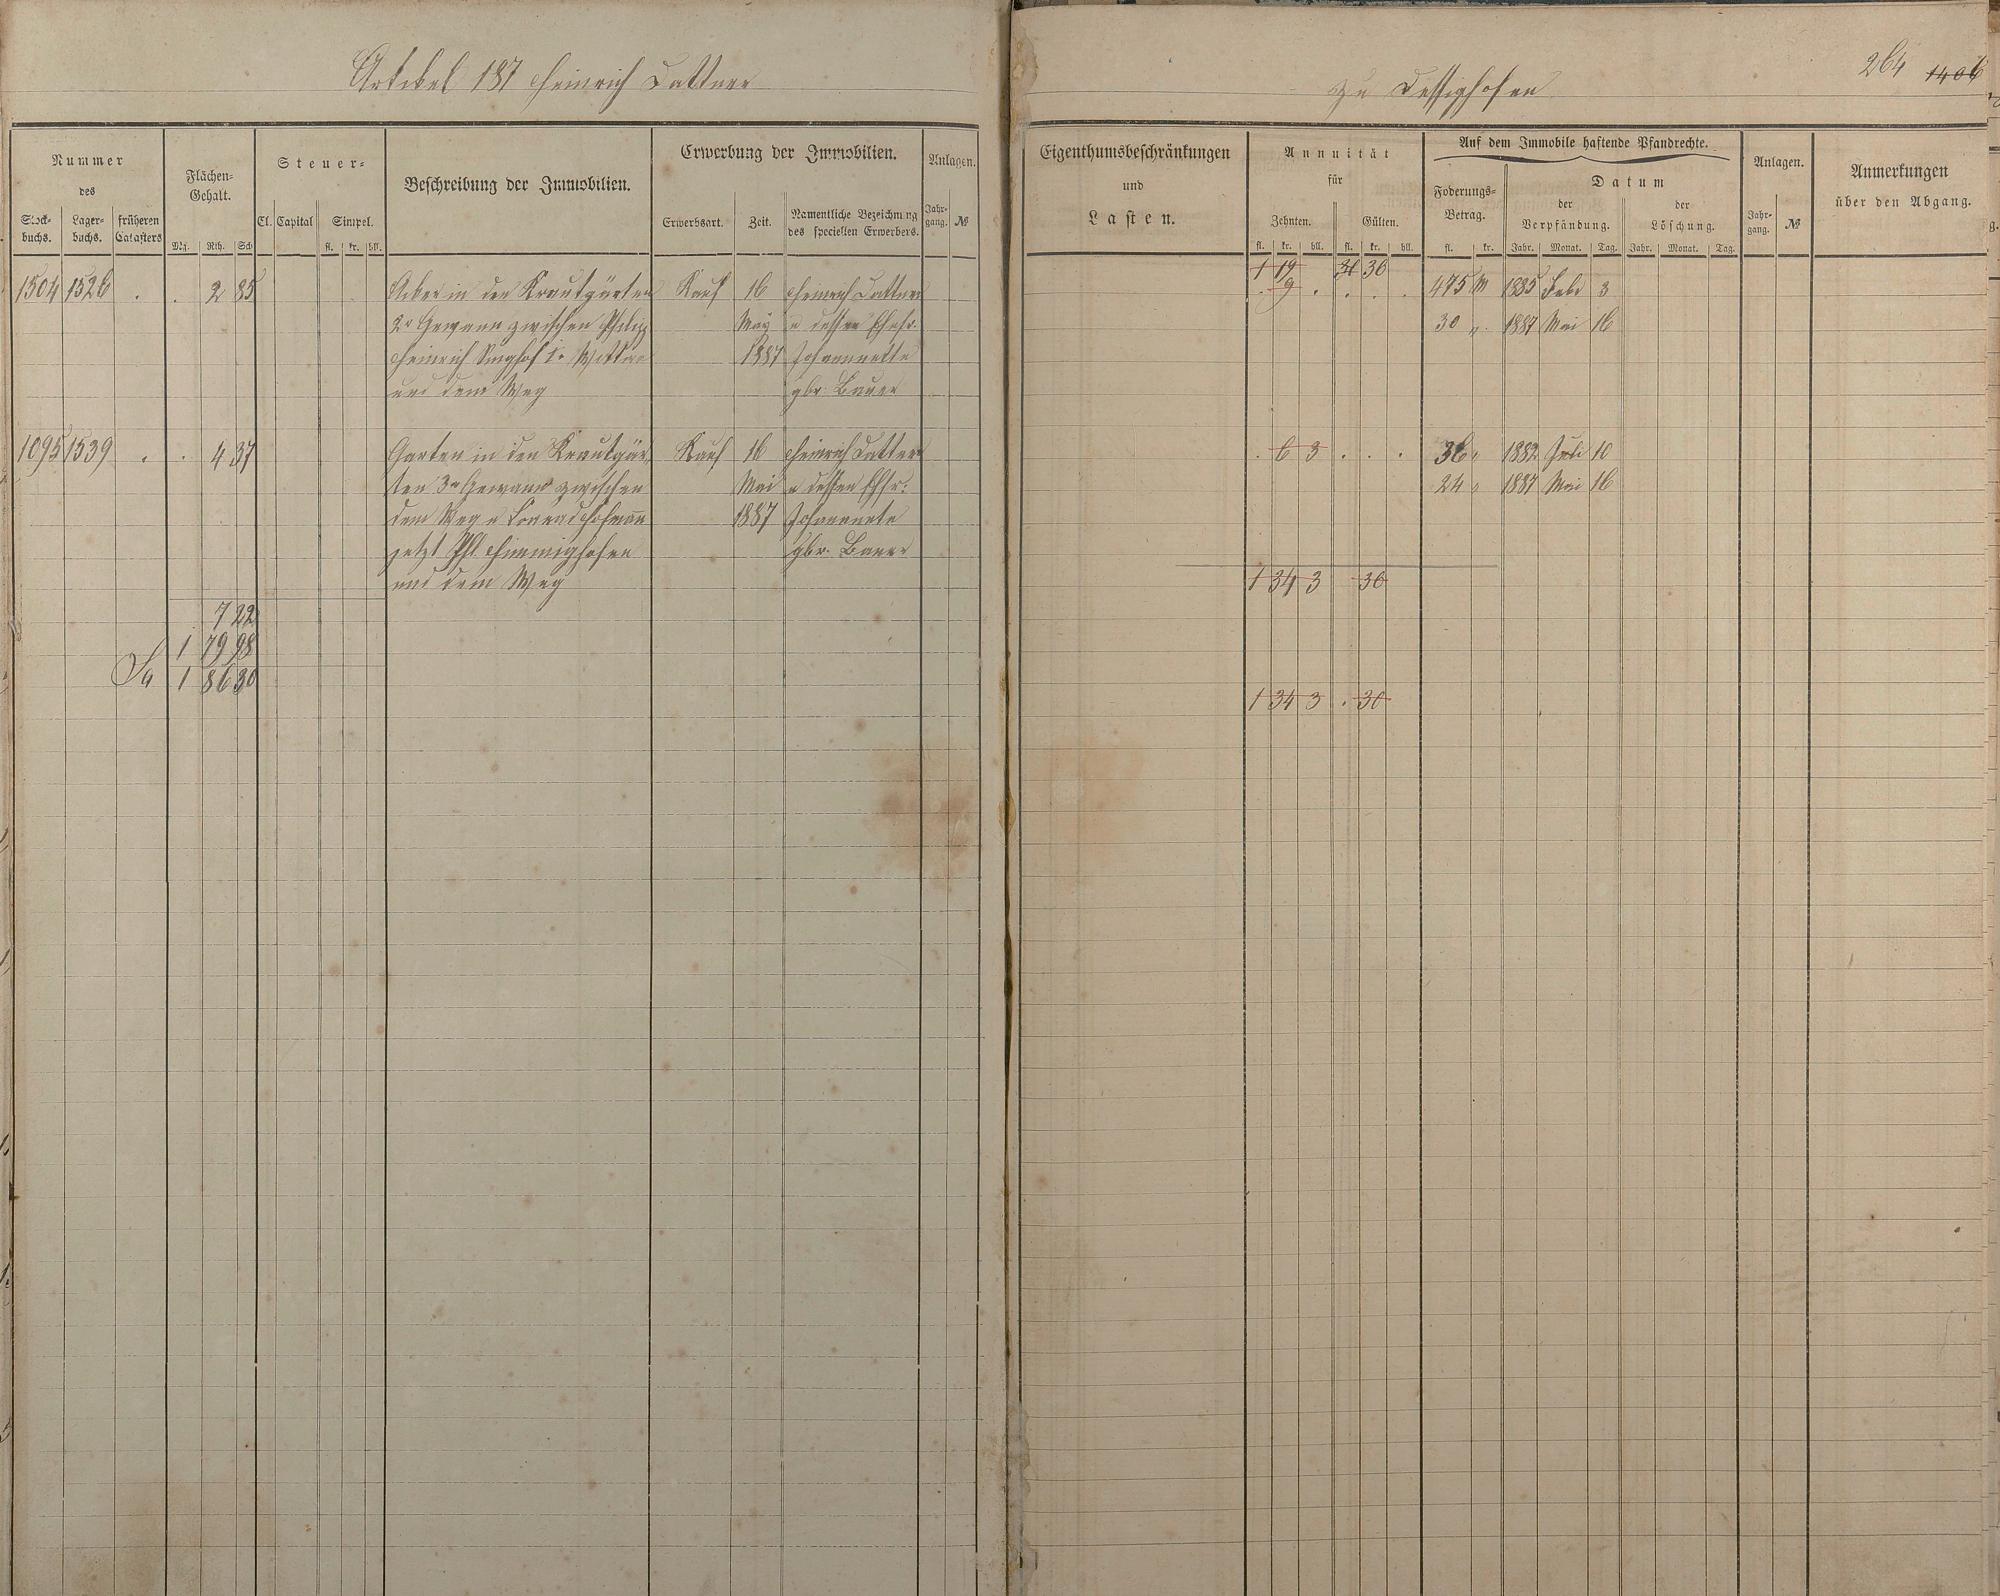 Artikel 187 Heinrich Dattner
zu Dessighofen
264 1406
Nummer
des
Stock-
buchs.
Lager-
buchs.
früheren
Catasters
Flächen-
Gehalt.
Mg. Rth. Sch
Steuer-
Cl. Capital Simpel.
fl. kr. hll.
Beschreibung der Immobilien.
Erwerbung der Immobilien.
Erwerbsart. Zeit. Namentliche Bezeichnung
des speciellen Erwerbers.
Anlagen.
Jahr-
gang. №
Eigenthumsbeschränkungen
und
Lasten.
Annuität
für
Zehnten. Gülten.
fl. kr. hll. fl. kr. hll.
Auf dem Immobile haftende Pfandrechte.
Foderungs-
Betrag.
fl. kr.
Datum
der
Verpfändung.
Jahr. Monat. Tag.
der
Löschung.
Jahr. Monat. Tag.
Anlagen.
Jahr-
gang. №
Anmerkungen
über den Abgang.
1 19 30
1504 1526 . . 2 85 Acker in den Krautgärten Kauf 16 Heinrich Dattner . 9 . . . . 475 M 1885 Febr 3
2r Gewann zwischen Philipp May u dessen Ehefr. 30 „ 1887 Mai 16
Heinrich 1r 1887 Johannette
und dem Weg gbr. Bauer
1095 1539 . . 4 37 Garten in den Krautgär Kauf 16 Heinrich Dattner . 6 3 . . . 36 „ 1882 Juli 10
ten 3r Gewann zwischen Mai u dessen Ehfr. 24 „ 1887 Mai 16
dem Weg u Conrad Hofmann 1887 Johannete
jetzt Phl. Himmighofen gbr. Bauer
und dem Weg 1 34 3 30
7 22
1 79 98
Sa 1 86 30
1 34 3 . 30